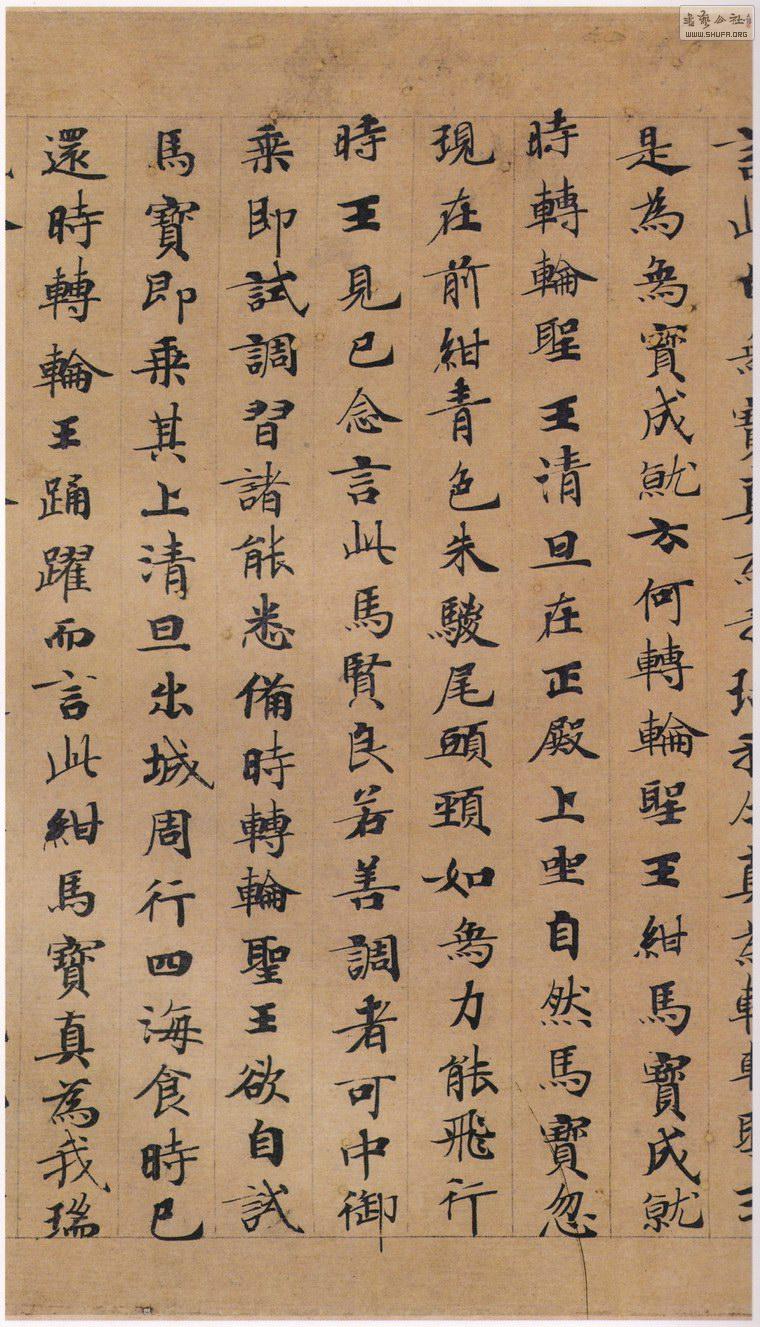 書藝公社
WWW.SHUFA.ORG
是為象寶成就云何轉輪聖王紺馬寶成就
時轉輪聖王清旦在正殿上坐自然馬寶忽
現在前紺青色朱騣尾頭頸如象力能飛行
時王見已念言此馬賢良若善調者可中御
乘即試調習諸能悉備時轉輪聖王欲自試
馬寶即乘其上清旦出城周行四海食時已
還時轉輪王踊躍而言此紺馬寶真為我瑞